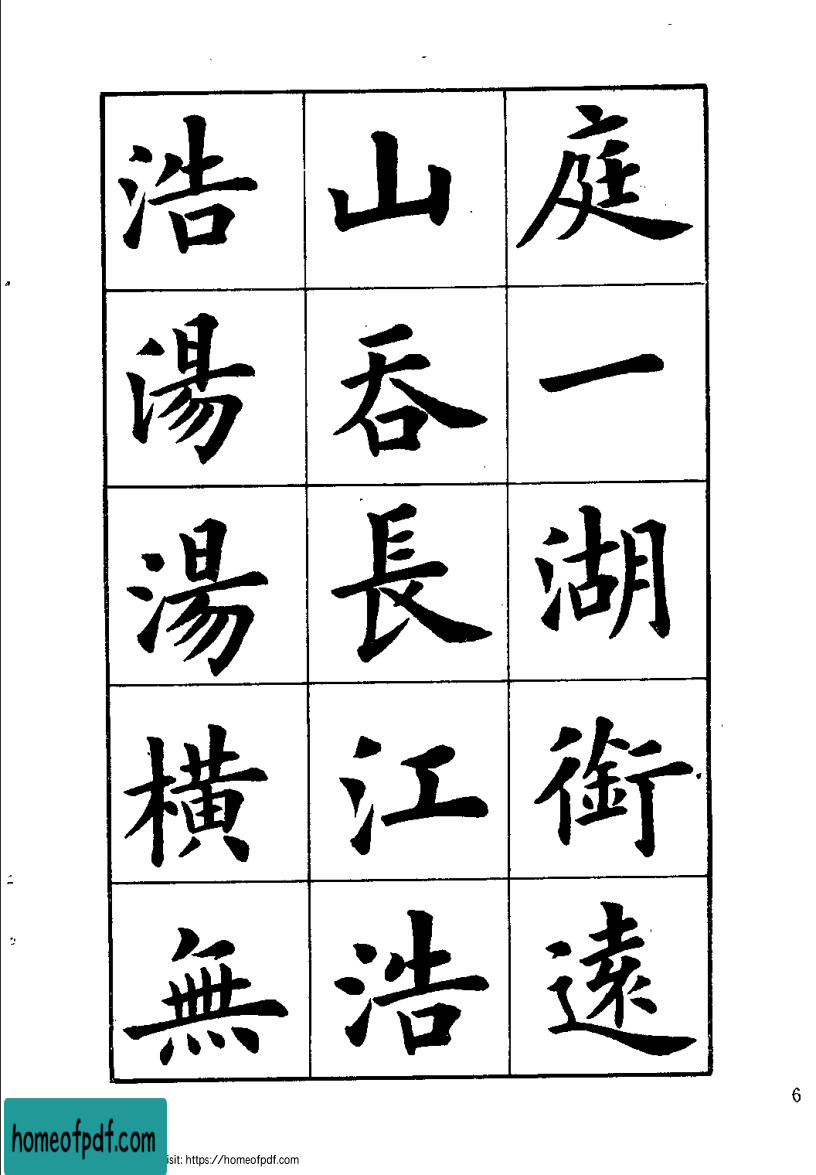 庭一湖銜遠
山吞長江浩
浩湯湯橫無
6
homeofpdf.com
isit: https://homeofpdf.com